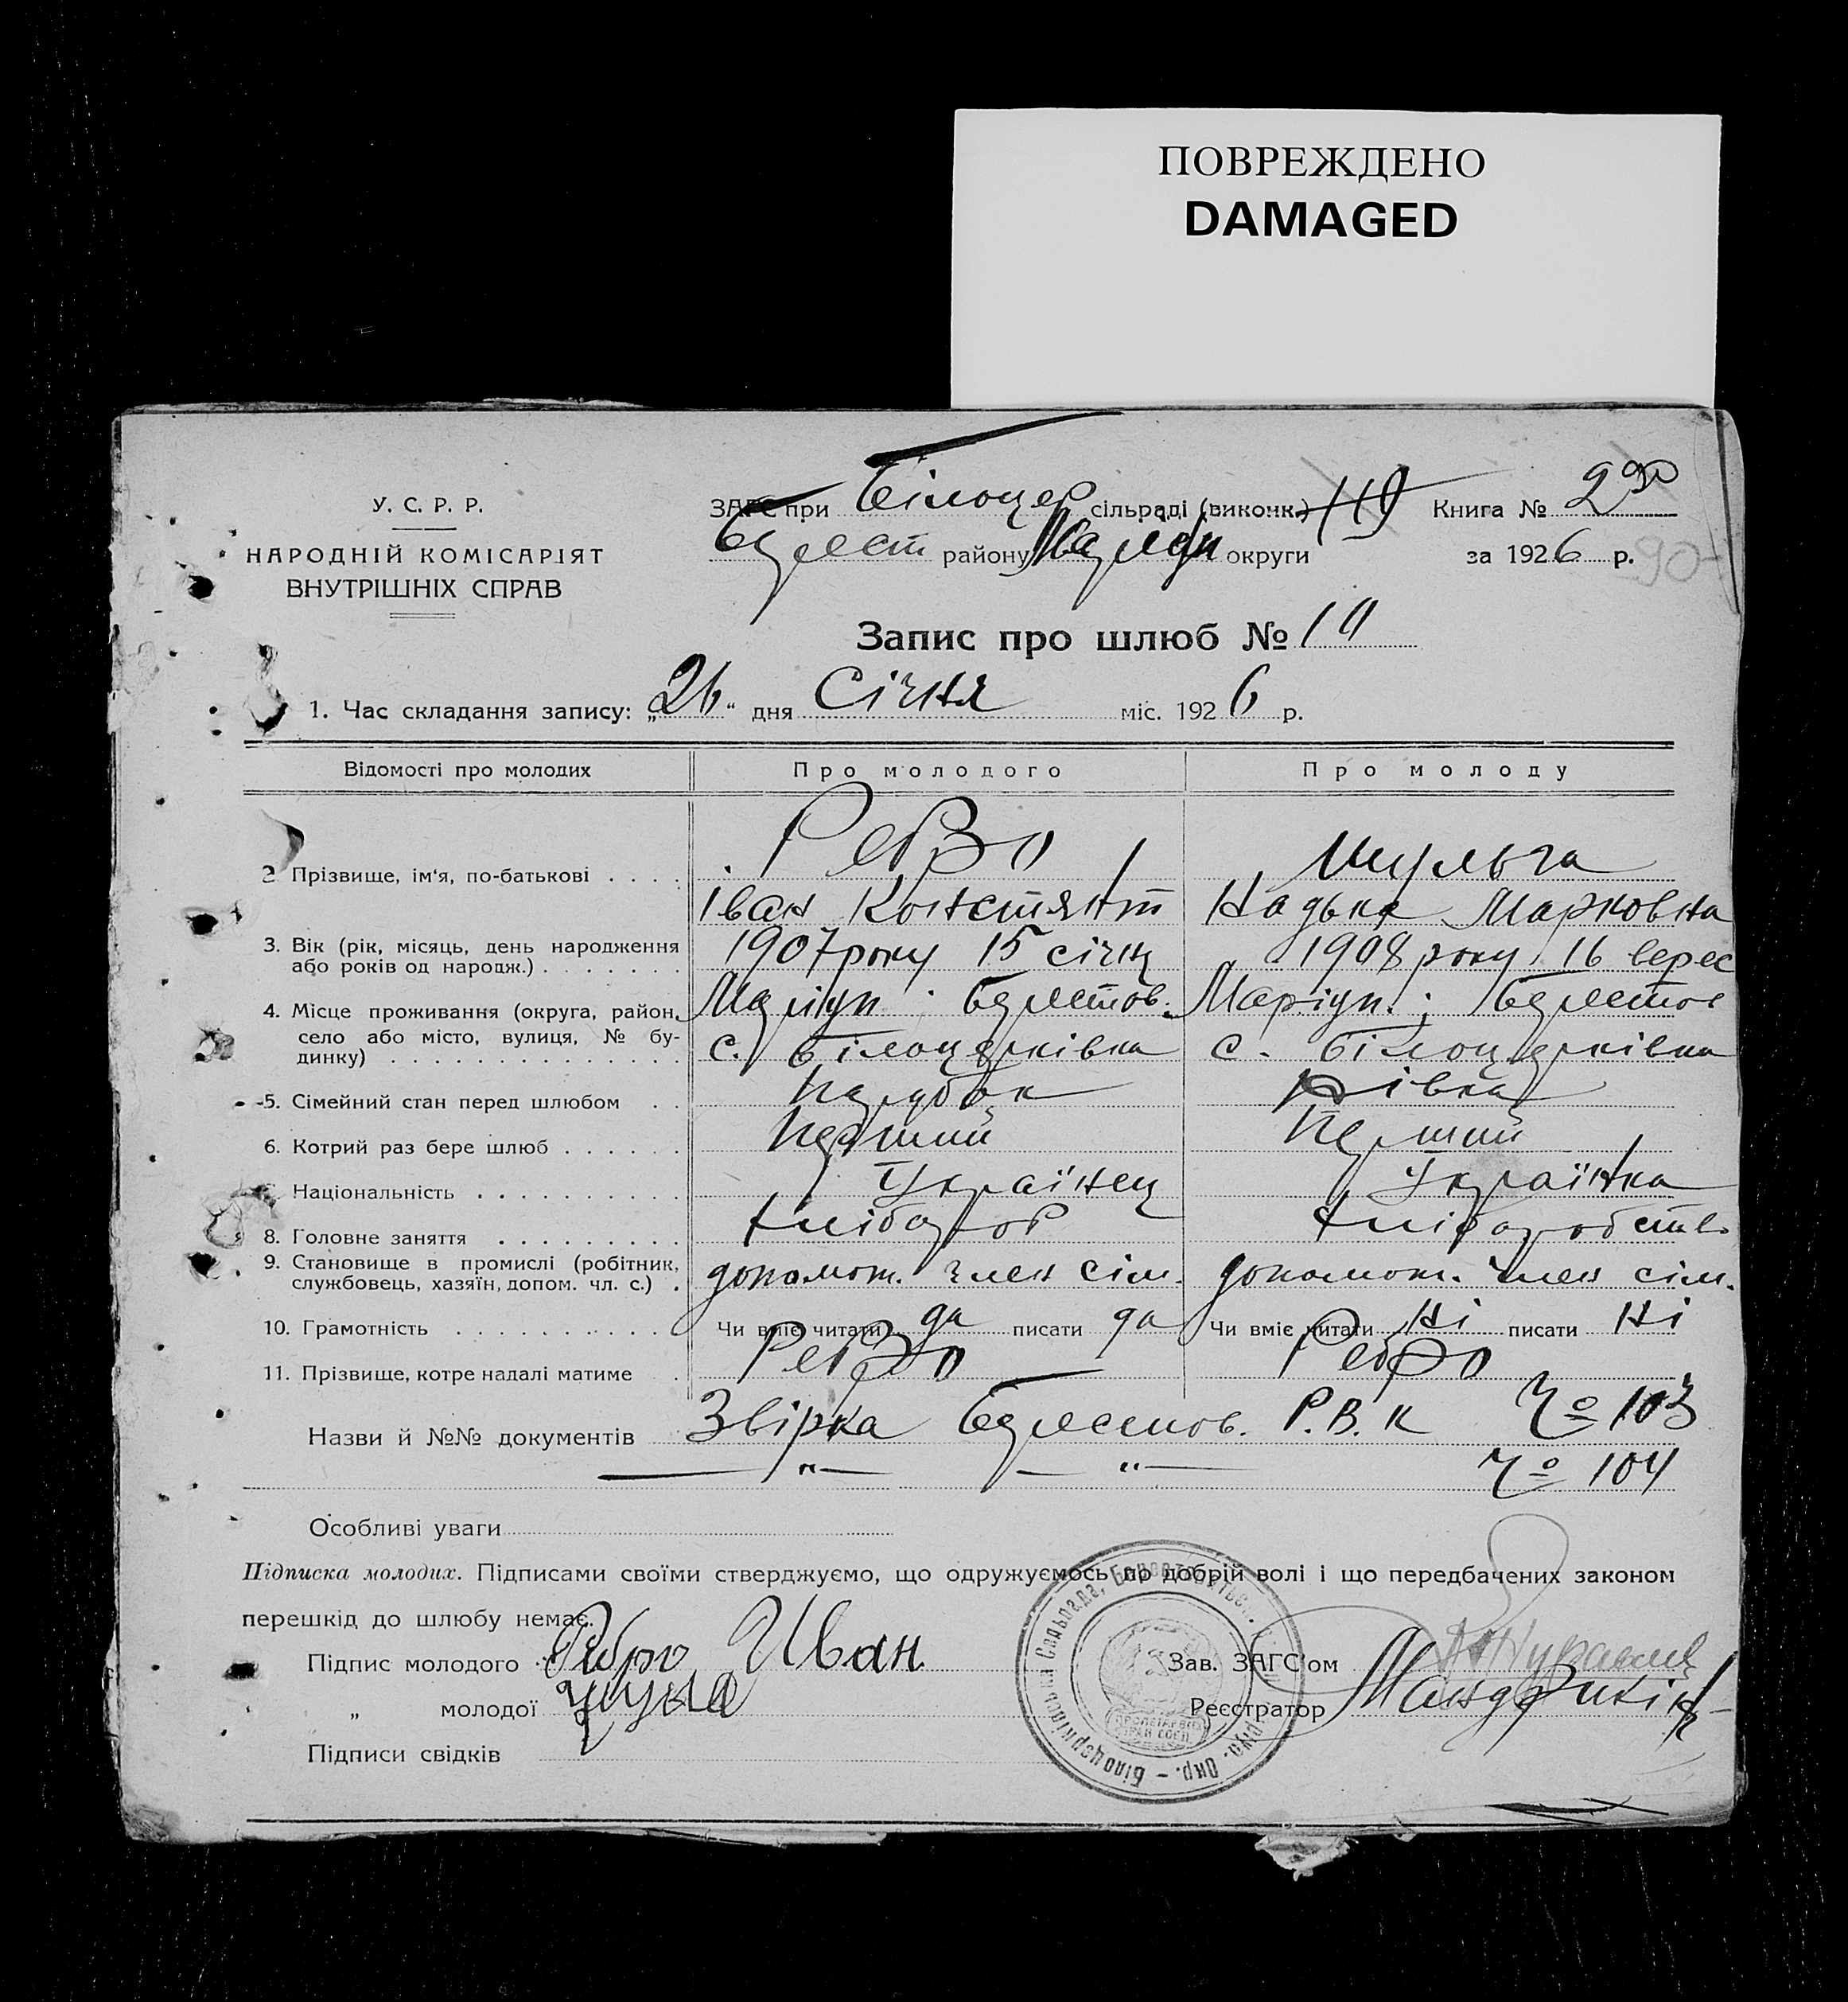 ПОВРЕЖДЕНО
DAMAGED
У. С. Р. Р.
НАРОДНІЙ КОМІСАРІЯТ
ВНУТРІШНІХ СПРАВ
ЗАГС при Білоцер сільраді (виконк.) Книга № 2
району округи за 1926 р.
90
Запис про шлюб № 10
1. Час складання запису: „26“ дня Січня міс. 1926 р.
Відомості про молодих Про молодого Про молоду
2 Прізвище, ім'я, по-батькові Ребро Шульга
Іван Констянт Надька Марковна
3. Вік (рік, місяць, день народження 1907 року 15 січн 1908 року 16 верес
або років од народж.)
4. Місце проживання (округа, район, Маріуп : Берестов. Маріуп. : Берестов
село або місто, вулиця, № бу- с. Білоцерківка с. Білоцерківка
динку)
5. Сімейний стан перед шлюбом парубок дівка
6. Котрий раз бере шлюб перший перший
Національність Українец Українка
8. Головне заняття хлібороб хліборобств.
9. Становище в промислі (робітник, допомож. член сім. допомож. член сім.
службовець, хазяїн, допом. чл. с.)
10. Грамотність Чи вміє читати да писати да Чи вміє читати ні писати ні
11. Прізвище, котре надалі матиме Ребро Ребро
Назви й №№ документів Звірка Берестов. Р. В. К Чо 103
— „ — — „ — Чо 104
Особливі уваги
Підписка молодих. Підписами своїми стверджуємо, що одружуємось по добрій волі і що передбачених законом
перешкід до шлюбу немає.
Підпис молодого Ребро Иван Зав. ЗАГС'ом
„ молодої Реєстратор
Підписи свідків
Білоцерківська Сільрада